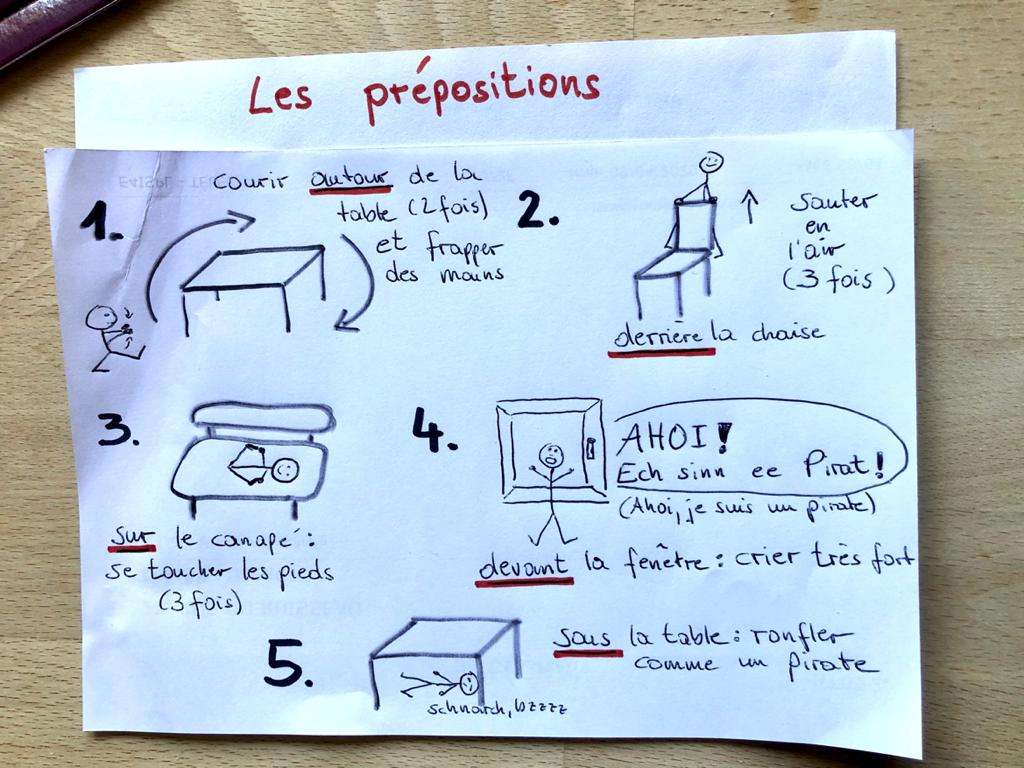 Les prépositions
1.
courir autour de la
table (2 fois)
et frapper
des mains
2.
sauter
en
l'air
(3 fois)
derrière la chaise
3.
sur le canapé :
se toucher les pieds
(3 fois)
4.
AHOI!
Ech sinn ee Pirat!
(Ahoi, je suis un pirate)
devant la fenêtre : crier très fort
5.
schnarch, bzzzz
sous la table : ronfler
comme un pirate